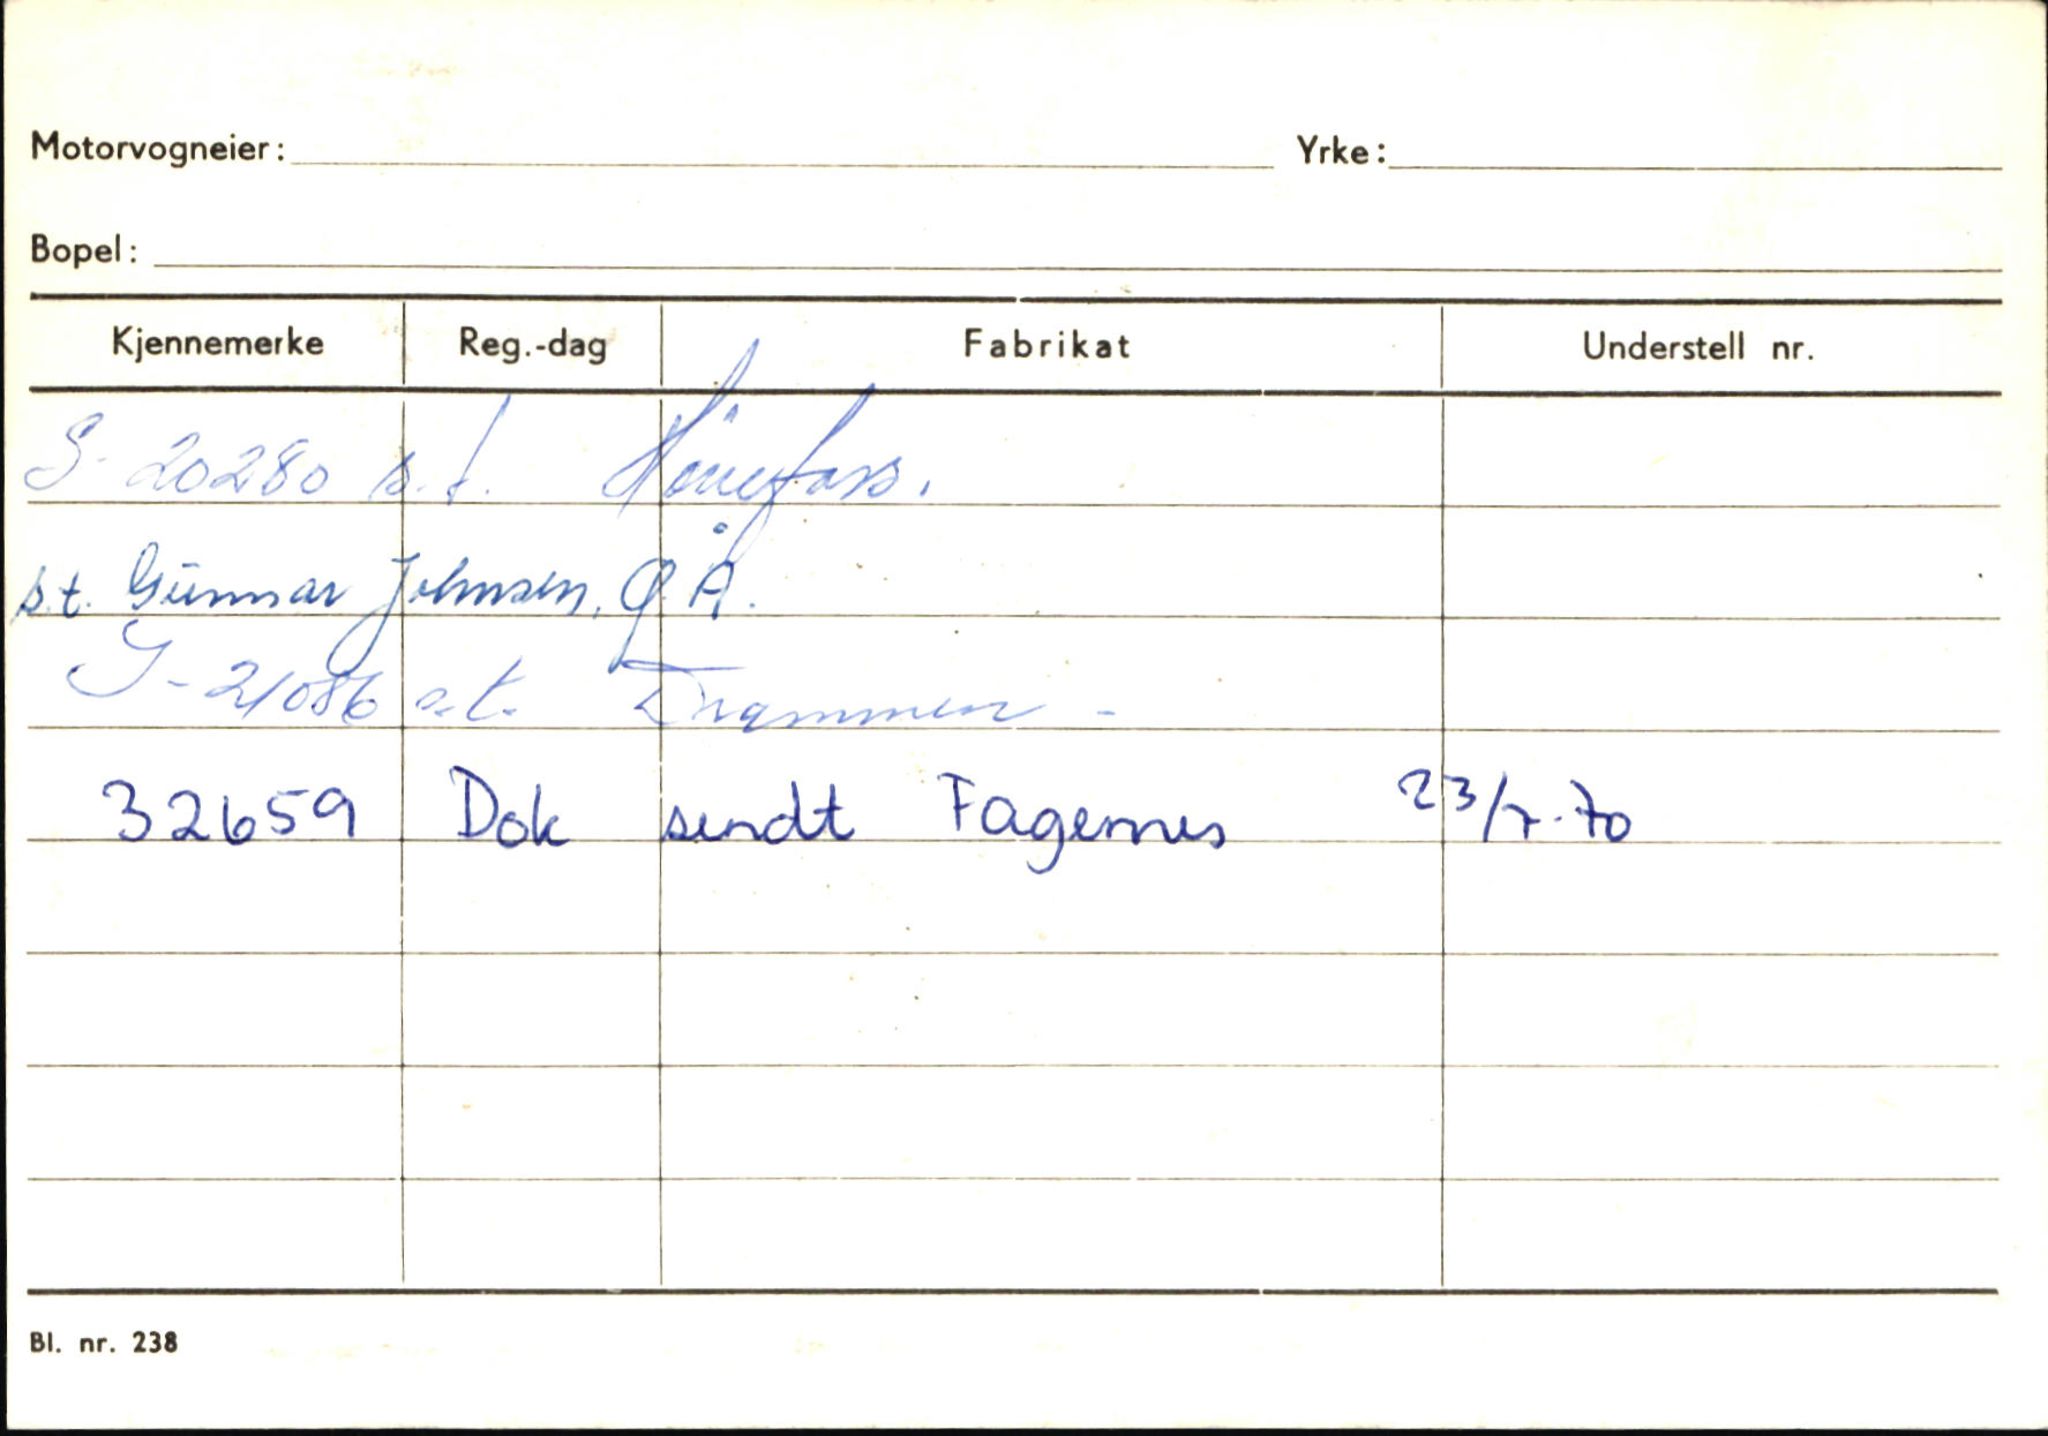 Motorvogneier: Yrke:
Bopel:
Kjennemerke Reg.-dag Fabrikat Understell nr.
S-20280 s.t. Hønefoss.
s.t. Gunnar Johnsen, Ø.Å.
S-21086 s.t. Drammen -
32659 Dok sendt Fagernes 23/7-70
Bl. nr. 238